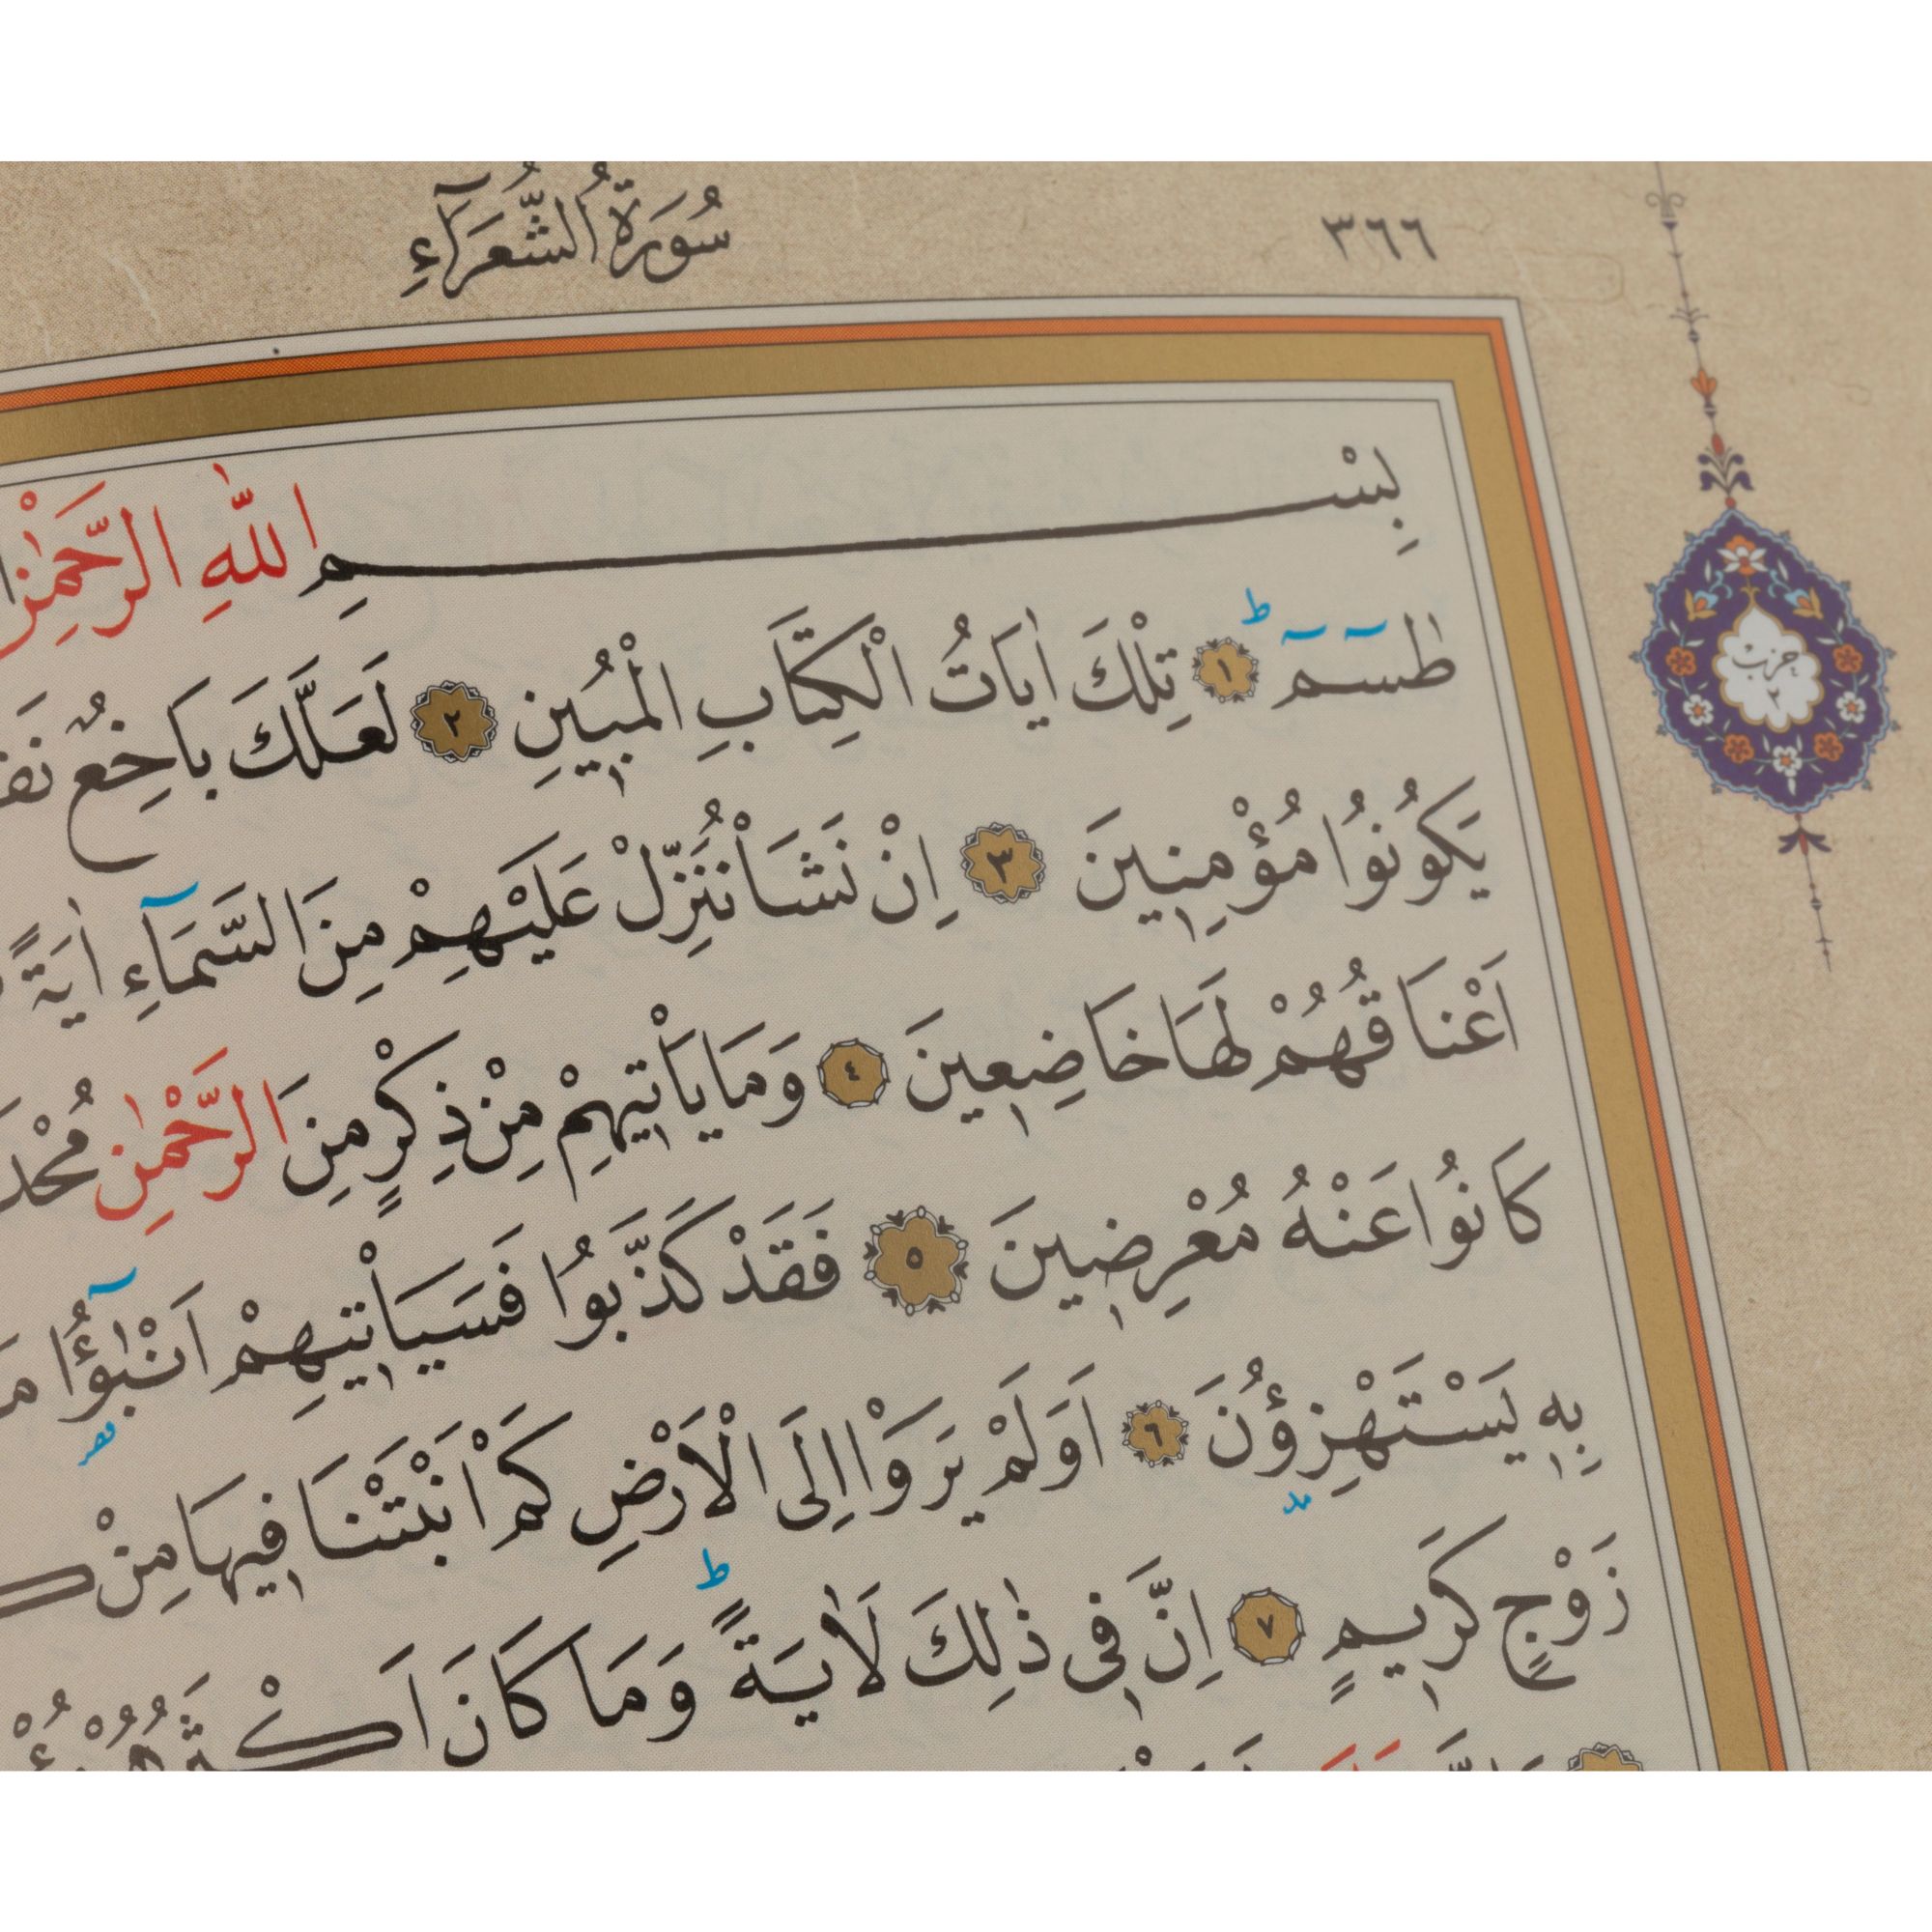 ٣٦٦
سُورَةُ الشُّعَرَآءِ
بِسْمِ اللّٰهِ الرَّحْمٰنِ
طٰسٓمٓ ١ ط تِلْكَ اٰيَاتُ الْكِتَابِ الْمُب۪ينِ ٢ لَعَلَّكَ بَاخِعٌ
يَكُونُوا مُؤْمِن۪ينَ ٣ اِنْ نَشَأْ نُنَزِّلْ عَلَيْهِمْ مِنَ السَّمَٓاءِ اٰيَةً
اَعْنَاقُهُمْ لَهَا خَاضِع۪ينَ ٤ وَمَا يَأْت۪يهِمْ مِنْ ذِكْرٍ مِنَ الرَّحْمٰنِ
كَانُوا عَنْهُ مُعْرِض۪ينَ ٥ فَقَدْ كَذَّبُوا فَسَيَأْت۪يهِمْ اَنْبٰٓؤُا
بِه۪ يَسْتَهْزِؤُ۫نَ ٦ اَوَلَمْ يَرَوْا اِلَى الْاَرْضِ كَمْ اَنْبَتْنَا ف۪يهَا مِنْ
زَوْجٍ كَر۪يمٍ ٧ اِنَّ ف۪ي ذٰلِكَ لَاٰيَةً ط وَمَا كَانَ
حزب
٢